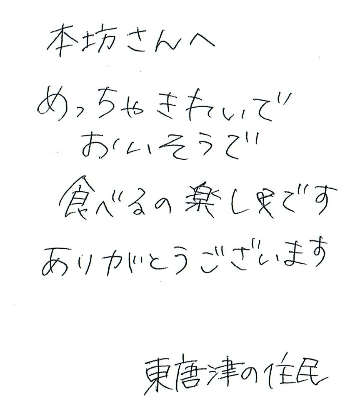 本坊さんへ
めっちゃきれいで
おいそうで
食べるの楽しみです
ありがとうございます
東唐津の住民